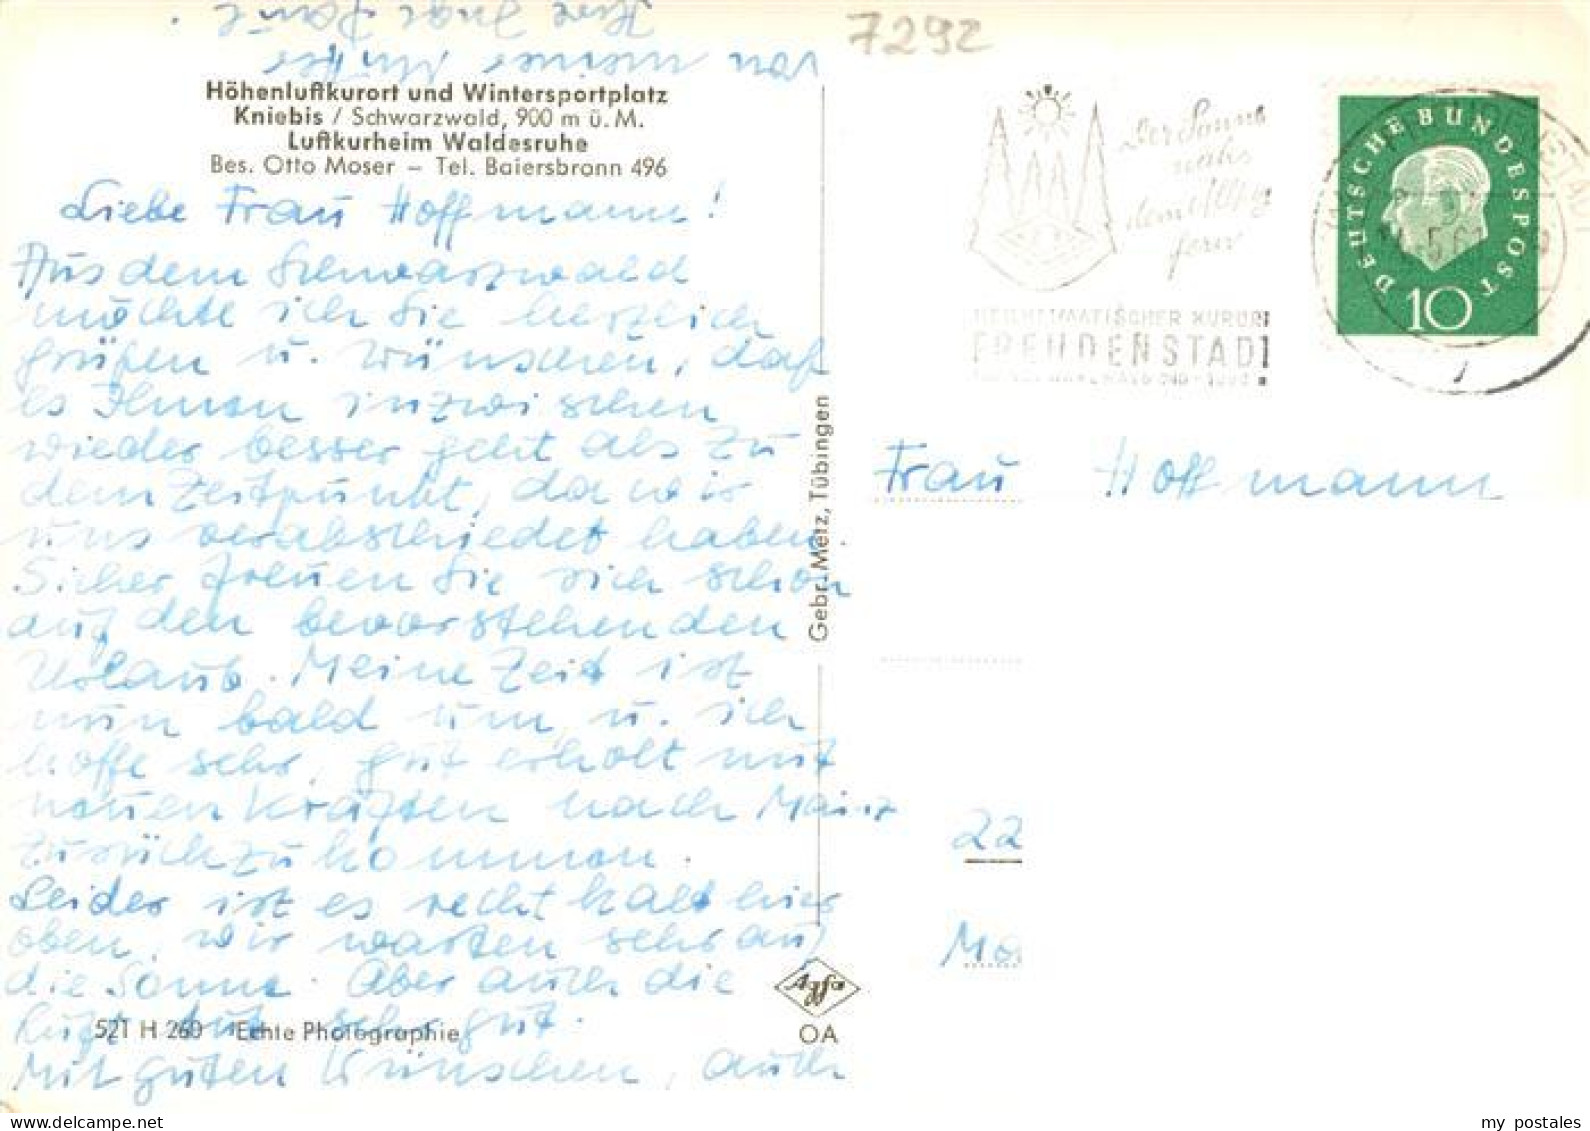 7292
Höhenluftkurort und Wintersportplatz
Kniebis / Schwarzwald, 900 m ü. M.
Luftkurheim Waldesruhe
Bes. Otto Moser – Tel. Baiersbronn 496
Liebe Frau Hoffmann!
Aus dem Schwarzwald
möchte ich Sie herzlich
grüßen u. wünschen, daß
es Ihnen inzwischen
wieder besser geht als zu
dem Zeitpunkt, da wir
uns verabschiedet haben.
Sicher freuen Sie sich schon
auf den bevorstehenden
Urlaub. Meine Zeit ist
nun bald um u. ich
hoffe sehr, gut erholt mit
neuen Kräften nach Mainz
zurückzukommen.
Leider ist es recht kalt hier
oben, wir warten sehr auf
die Sonne. Aber auch die
Luft tut sehr gut.
Mit guten Wünschen, auch
von meiner Mutter
Ihre Inge
521 H 260 Echte Photographie
Gebr. Metz, Tübingen
Agfa
OA
Der Sonne
nah
dem Alltag
fern
HEILKLIMATISCHER KURORT
FREUDENSTADT
DEUTSCHE BUNDESPOST
10
Frau Hoffmann
22
Ma
my postales